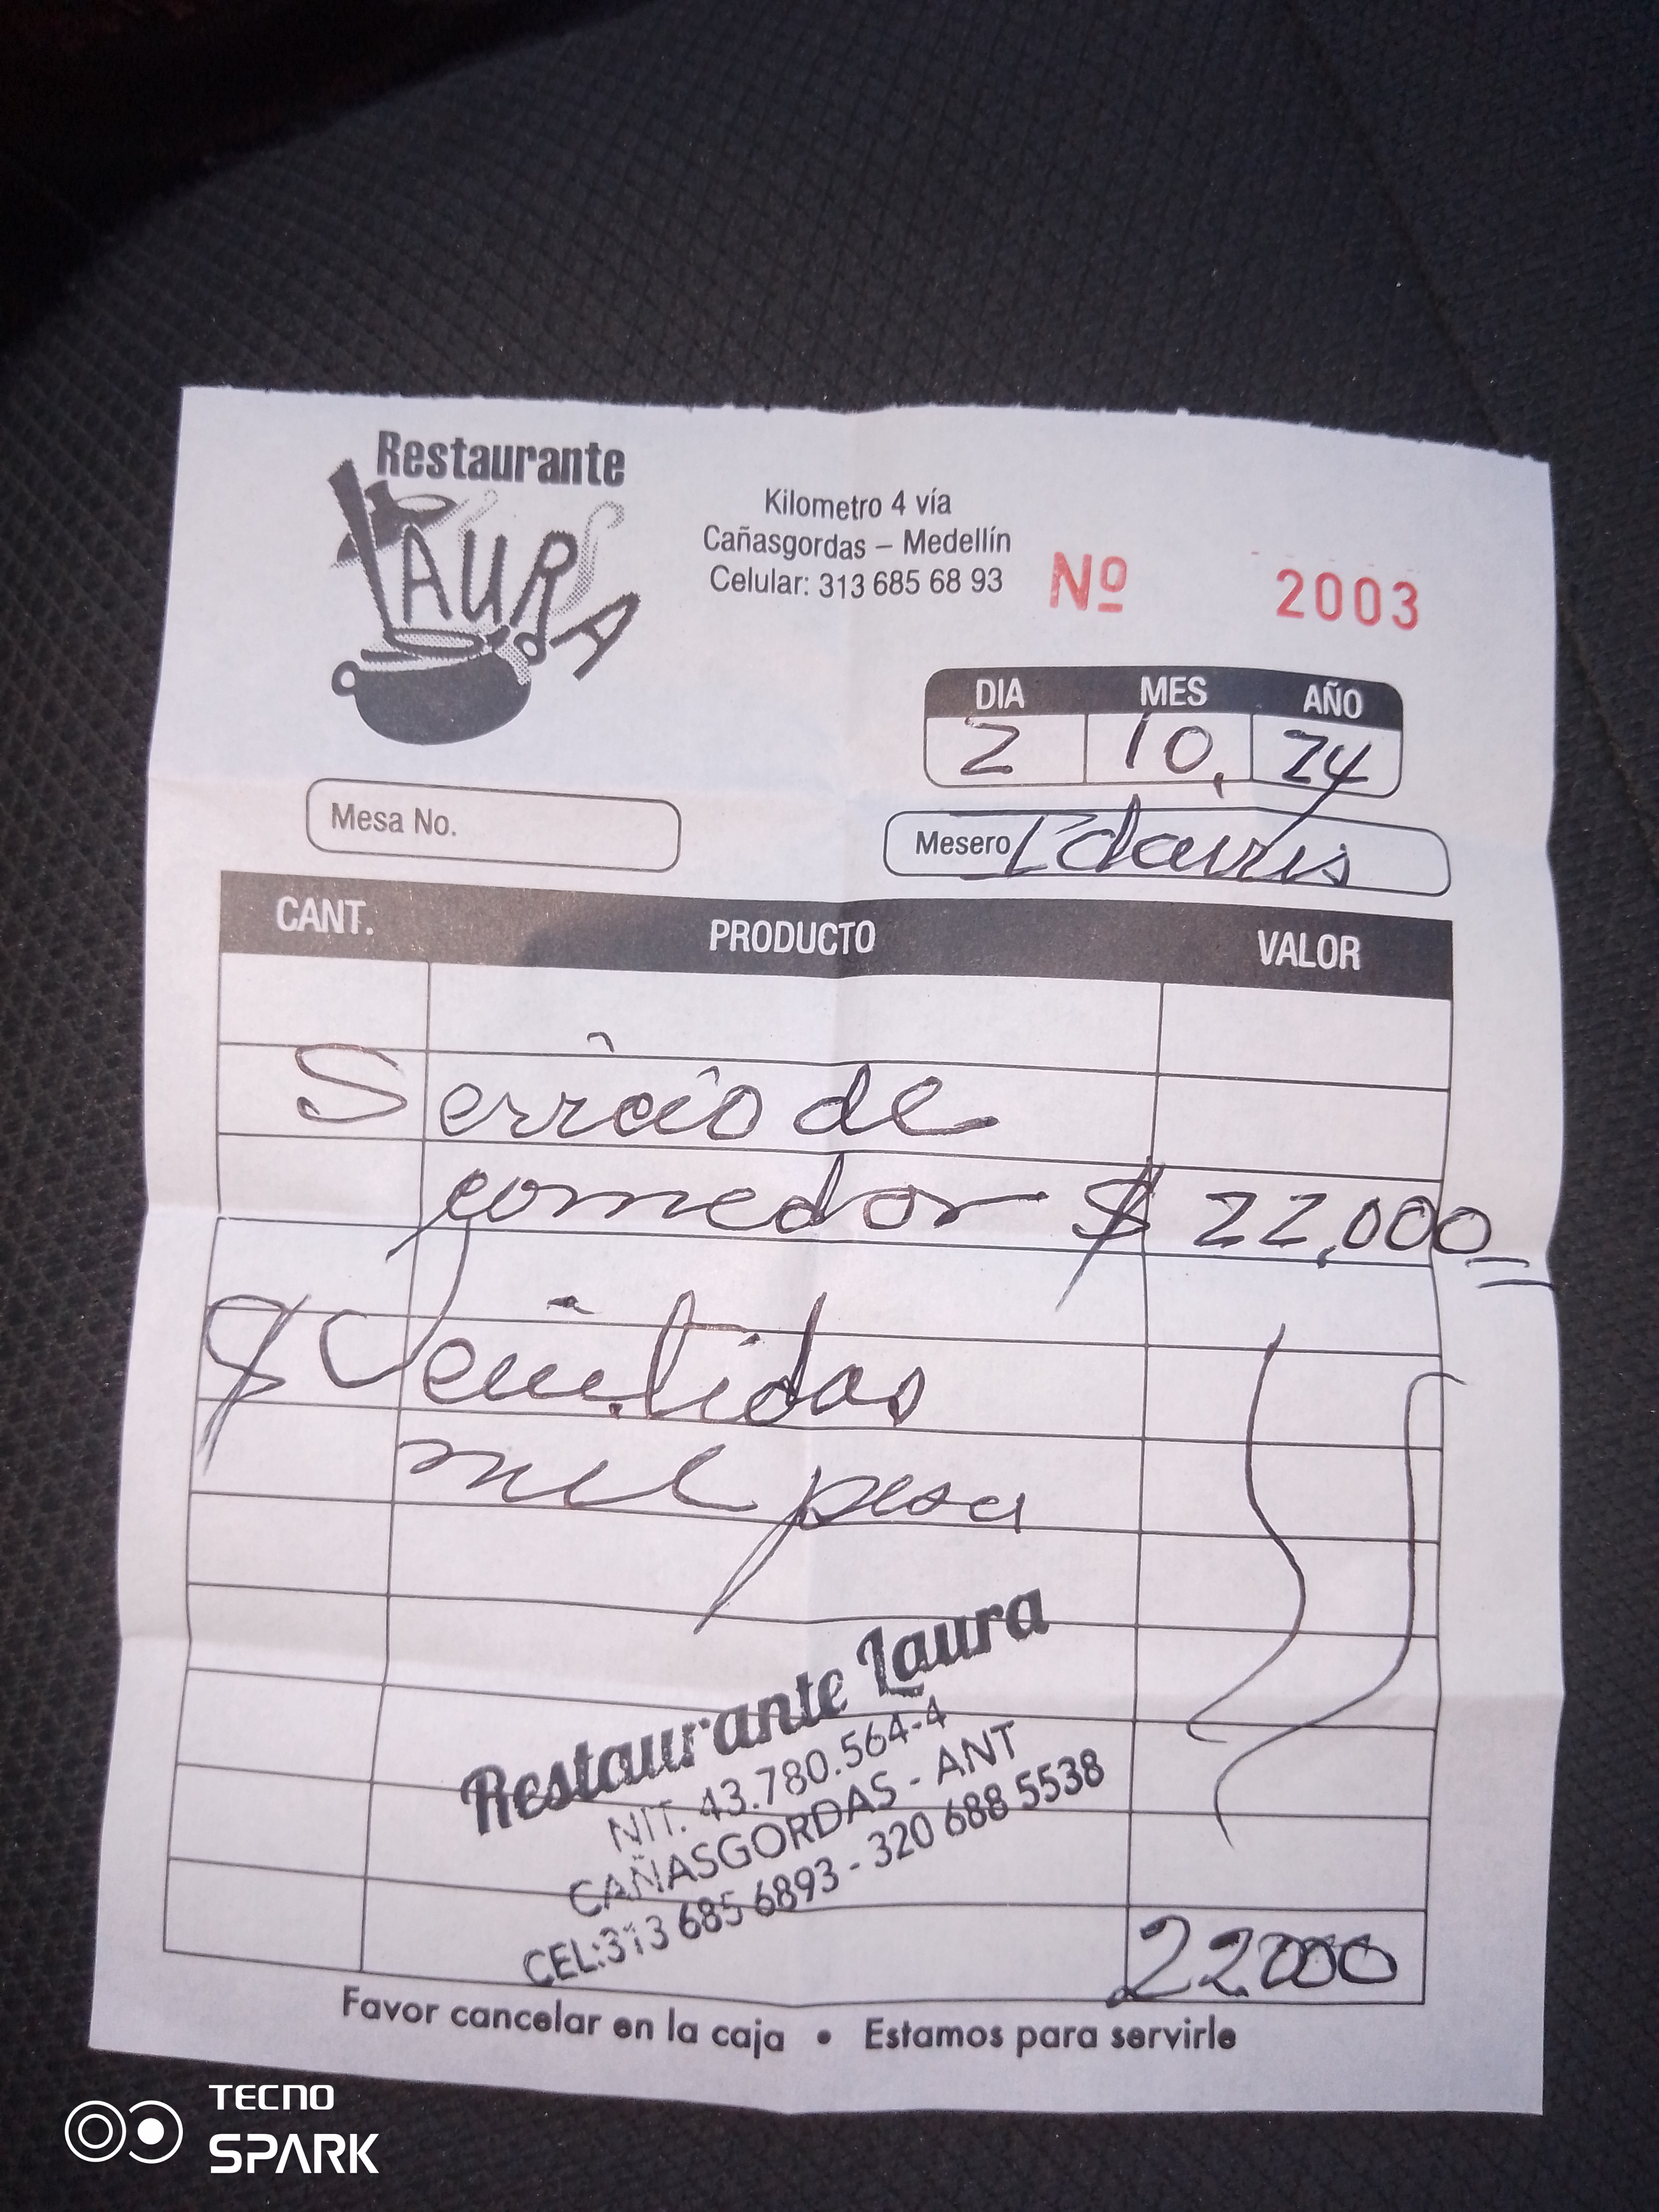 Restaurante
LAURA
Kilometro 4 vía
Cañasgordas – Medellín
Celular: 313 685 68 93
Nº 2003
DIA MES AÑO
2 10, 24
Mesa No.
Mesero
CANT. PRODUCTO VALOR
Servicio de
comedor $ 22,000
Veintidos
mil peso
Restaurante Laura
NIT. 43.780.564-4
CAÑASGORDAS - ANT
CEL:313 685 6893 - 320 688 5538
22000
Favor cancelar en la caja • Estamos para servirle
TECNO
SPARK